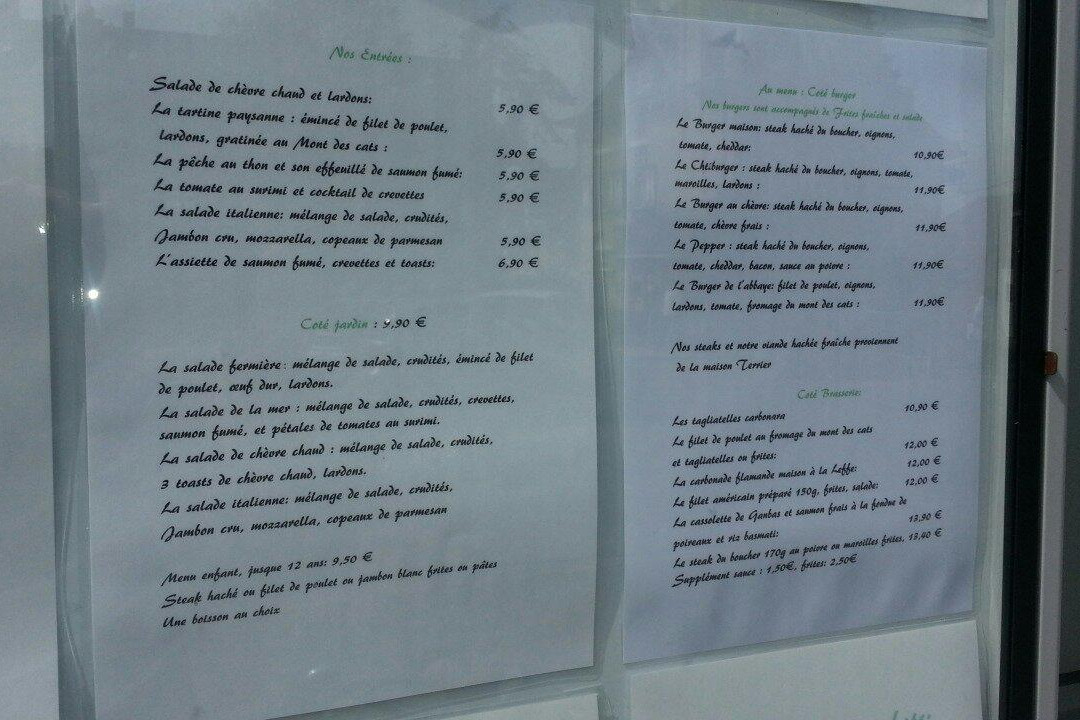 Nos Entrées :
Salade de chèvre chaud et lardons: 5,90 €
La tartine paysanne : émincé de filet de poulet,
lardons, gratinée au Mont des cats : 5,90 €
La pêche au thon et son effeuillé de saumon fumé: 5,90 €
La tomate au surimi et cocktail de crevettes 5,90 €
La salade italienne: mélange de salade, crudités,
Jambon cru, mozzarella, copeaux de parmesan 5,90 €
L'assiette de saumon fumé, crevettes et toasts: 6,90 €
Coté jardin : 9,90 €
La salade fermière : mélange de salade, crudités, émincé de filet
de poulet, œuf dur, lardons.
La salade de la mer : mélange de salade, crudités, crevettes,
saumon fumé, et pétales de tomates au surimi.
La salade de chèvre chaud : mélange de salade, crudités,
3 toasts de chèvre chaud, lardons.
La salade italienne: mélange de salade, crudités,
Jambon cru, mozzarella, copeaux de parmesan
Menu enfant, jusque 12 ans: 9,50 €
Steak haché ou filet de poulet ou jambon blanc frites ou pâtes
Une boisson au choix
Au menu : Coté burger
Nos burgers sont accompagnés de Frites fraîches et salade
Le Burger maison: steak haché du boucher, oignons,
tomate, cheddar: 10,90€
Le Chtiburger : steak haché du boucher, oignons, tomate,
maroilles, lardons : 11,90€
Le Burger au chèvre: steak haché du boucher, oignons,
tomate, chèvre frais : 11,90€
Le Pepper : steak haché du boucher, oignons,
tomate, cheddar, bacon, sauce au poivre : 11,90€
Le Burger de l'abbaye: filet de poulet, oignons,
lardons, tomate, fromage du mont des cats : 11,90€
Nos steaks et notre viande hachée fraîche proviennent
de la maison Terrier
Coté Brasserie:
Les tagliatelles carbonara 10,90 €
Le filet de poulet au fromage du mont des cats
et tagliatelles ou frites: 12,00 €
La carbonade flamande maison à la Leffe: 12,00 €
Le filet américain préparé 150g, frites, salade: 12,00 €
La cassolette de Gambas et saumon frais à la fondue de
poireaux et riz basmati: 13,90 €
Le steak du boucher 170g au poivre ou maroilles frites, 13,40 €
Supplément sauce : 1,50€, frites: 2,50€